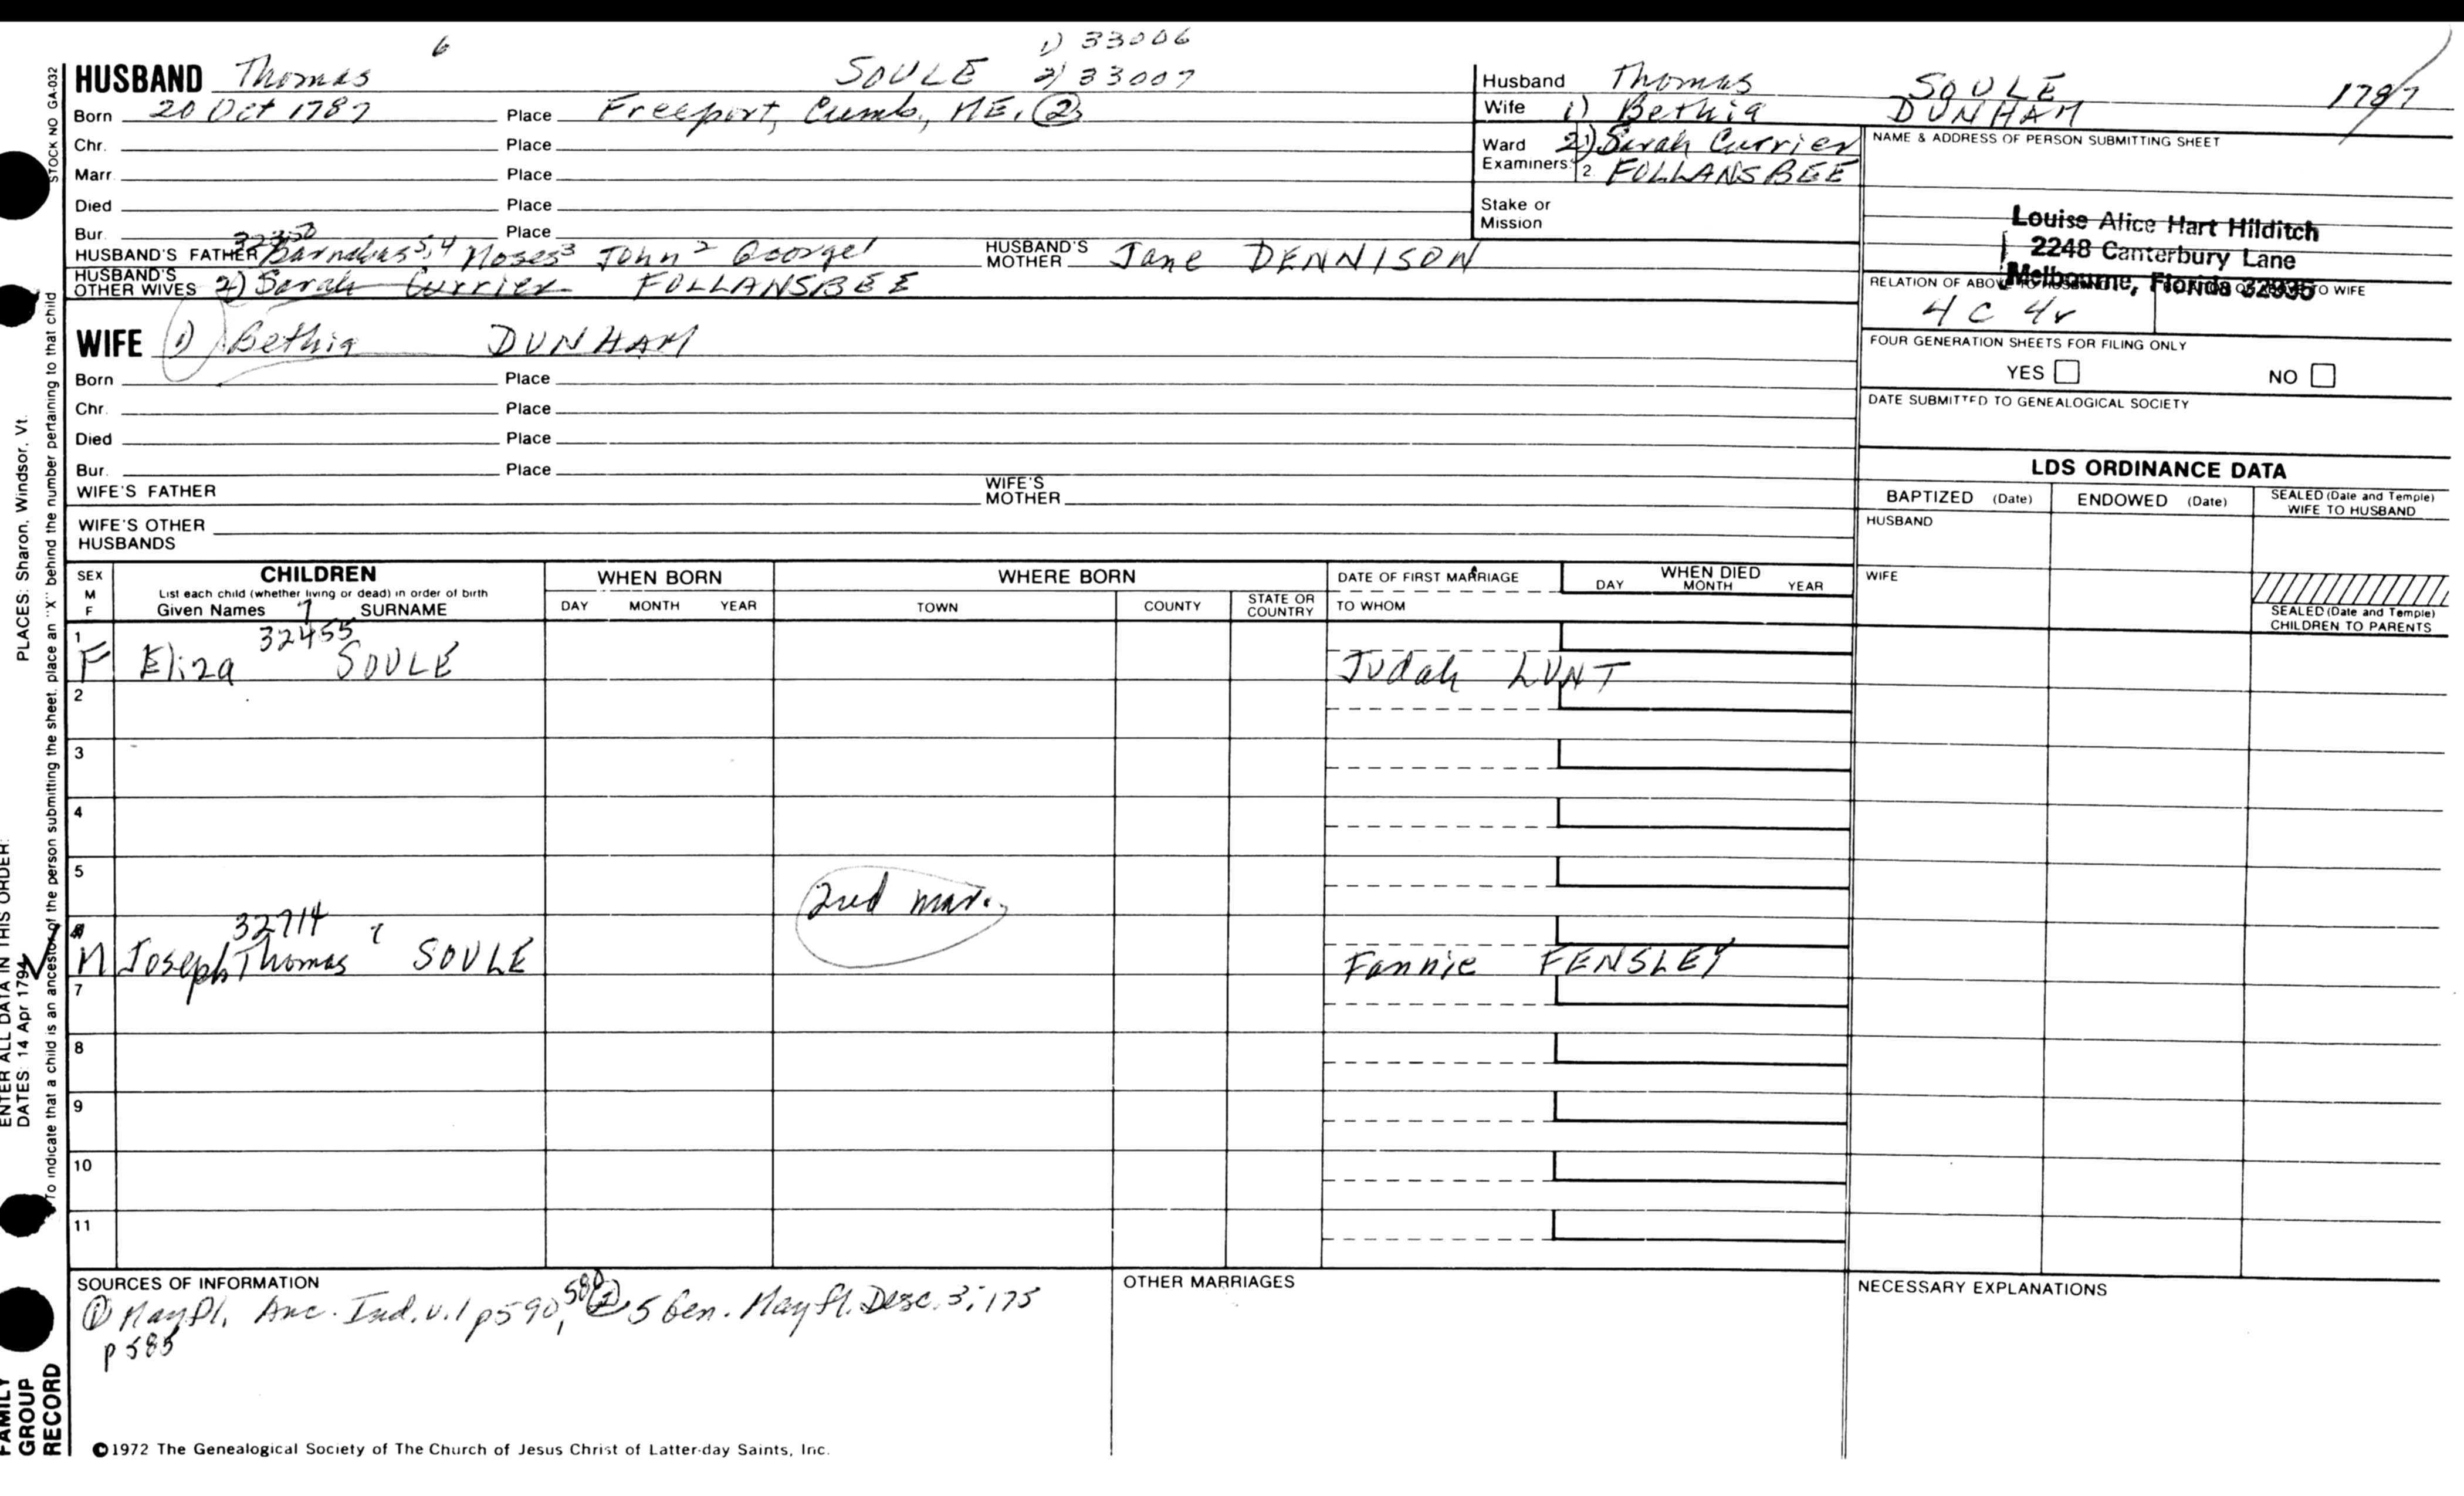 1) 33006
HUSBAND Thomas 6 SOULE 2) 33007
Born 20 Oct 1787 Place Freeport, Cumb, ME. ②
Chr. Place
Marr. Place
Died Place
Bur. Place
32350
HUSBAND'S FATHER Barnabas 5,4 Moses3 John2 George1 HUSBAND'S MOTHER Jane DENNISON
HUSBAND'S OTHER WIVES 2) Sarah Currier FOLLANSBEE
WIFE 1) Bethia DUNHAM
Born Place
Chr. Place
Died Place
Bur. Place
WIFE'S FATHER WIFE'S MOTHER
WIFE'S OTHER HUSBANDS
Husband Thomas SOULE 1787
Wife 1) Bethia DUNHAM
Ward 2) Sarah Currier
Examiners: 1 2 FOLLANSBEE
Stake or Mission
NAME & ADDRESS OF PERSON SUBMITTING SHEET
Louise Alice Hart Hilditch
2248 Canterbury Lane
Melbourne, Florida 32935
RELATION OF ABOVE TO WIFE
4 C 4r
FOUR GENERATION SHEETS FOR FILING ONLY
YES NO
DATE SUBMITTED TO GENEALOGICAL SOCIETY
LDS ORDINANCE DATA
BAPTIZED (Date) ENDOWED (Date) SEALED (Date and Temple) WIFE TO HUSBAND
HUSBAND
WIFE
SEALED (Date and Temple) CHILDREN TO PARENTS
SEX M F
CHILDREN
List each child (whether living or dead) in order of birth
Given Names 7 SURNAME
WHEN BORN
DAY MONTH YEAR
WHERE BORN
TOWN COUNTY STATE OR COUNTRY
DATE OF FIRST MARRIAGE
TO WHOM
WHEN DIED
DAY MONTH YEAR
1 32455
F Eliza SOULE Judah LUNT
2
3
4
5
2nd mar.
32714 7
M Joseph Thomas SOULE Fannie FENSLEY
7
8
9
10
11
SOURCES OF INFORMATION
① Mayfl. Anc. Ind. v.1 p590, 580 ② 5 Gen. Mayfl. Desc. 3:175
p 585
OTHER MARRIAGES
NECESSARY EXPLANATIONS
©1972 The Genealogical Society of The Church of Jesus Christ of Latter-day Saints, Inc.
STOCK NO GA-032
To indicate that a child is an ancestor of the person submitting the sheet, place an "X" behind the number pertaining to that child
PLACES: Sharon, Windsor, Vt.
ENTER ALL DATA IN THIS ORDER:
DATES: 14 Apr 1794
FAMILY
GROUP
RECORD